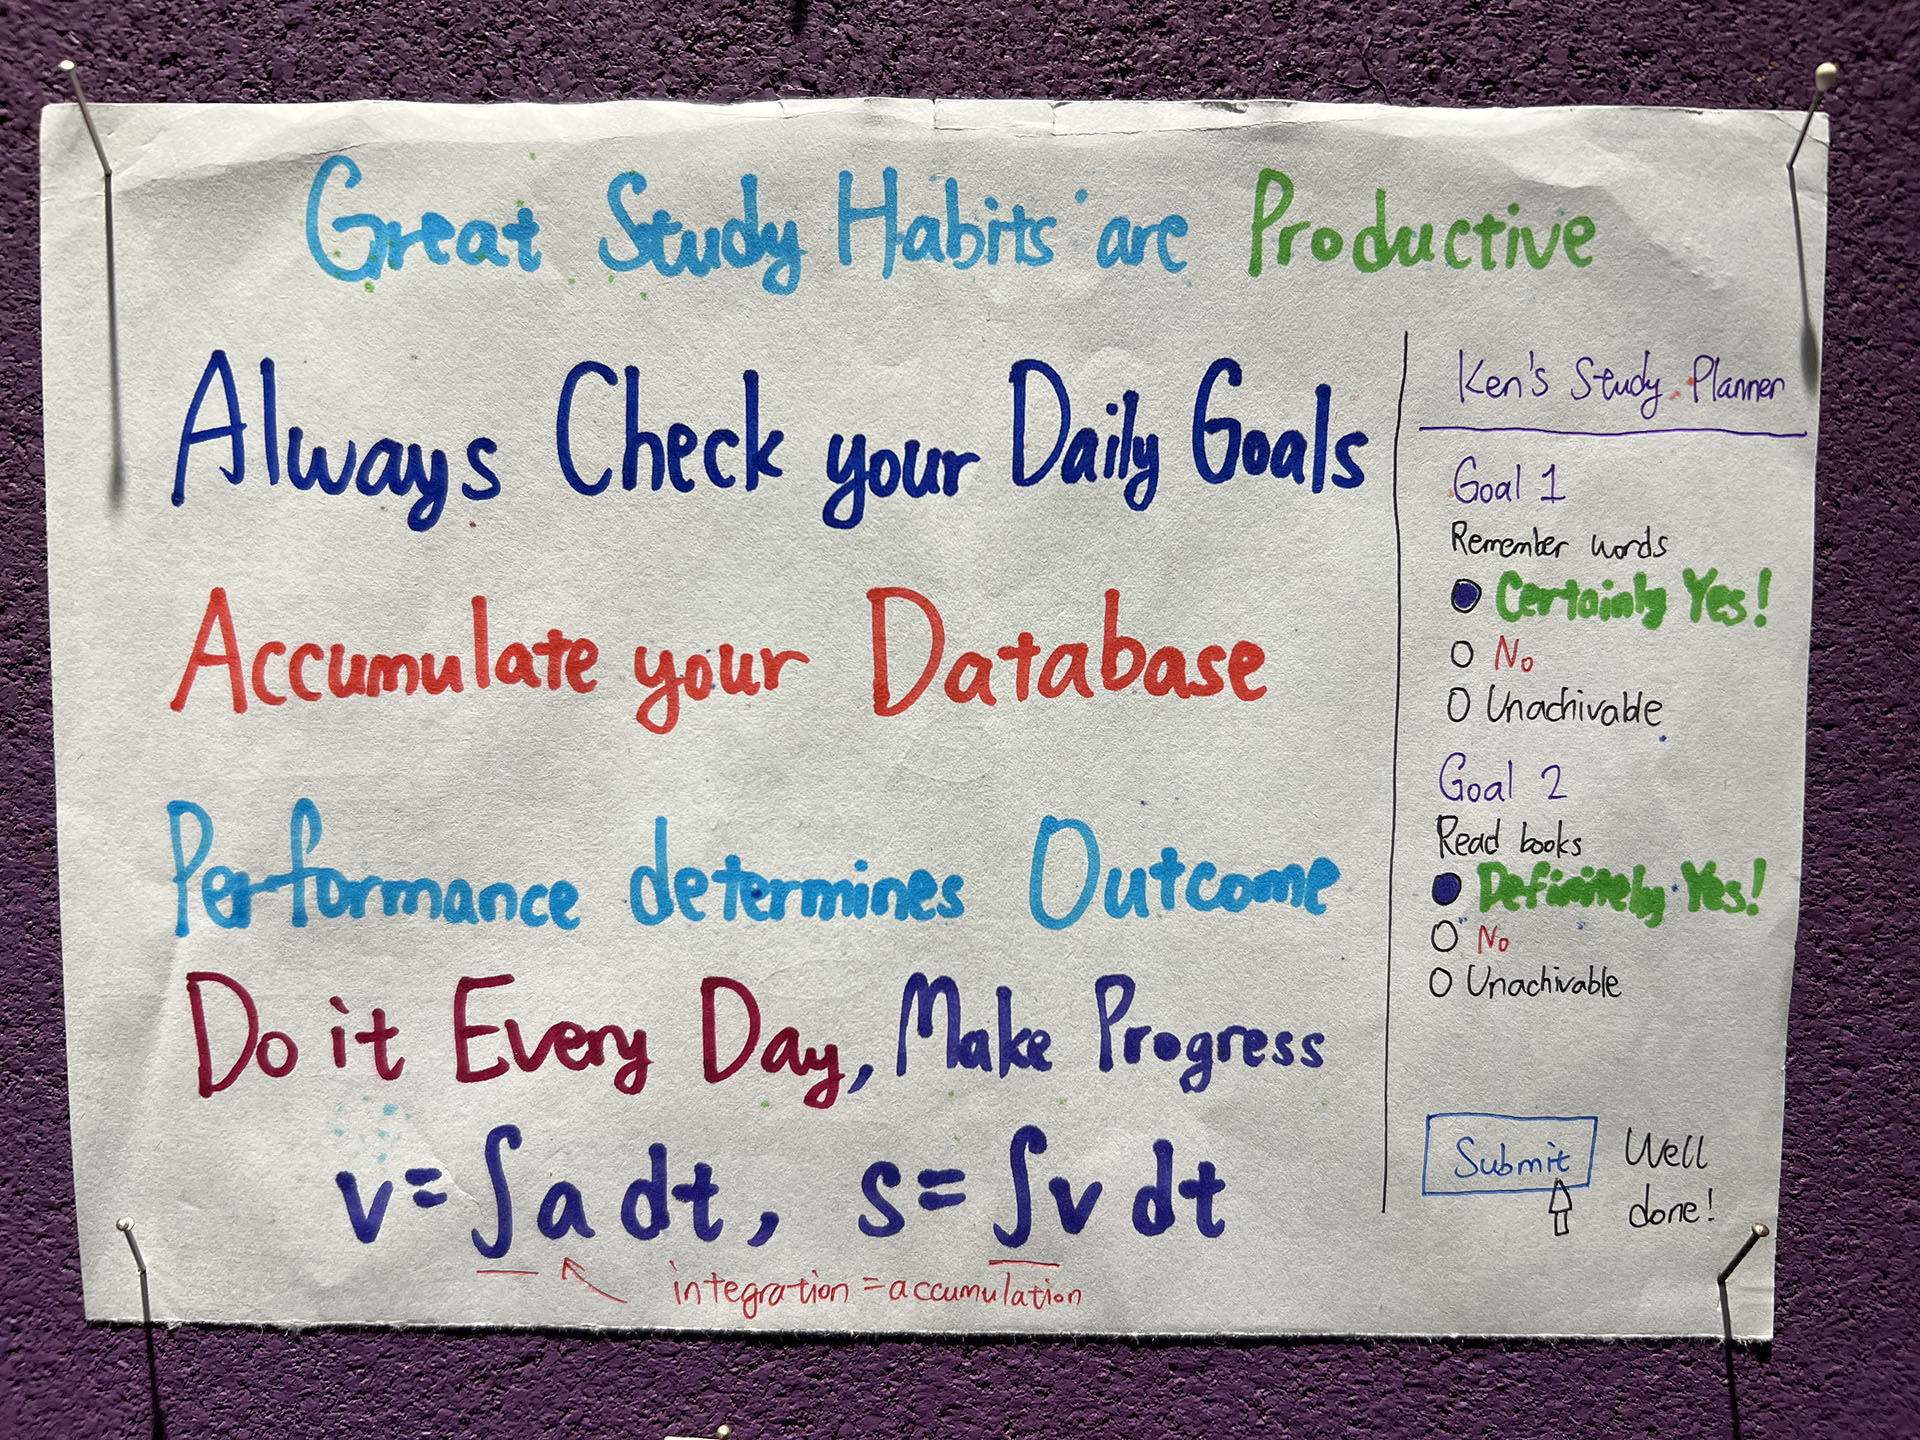 Great Study Habits are Productive
Always Check your Daily Goals
Accumulate your Database
Performance determines Outcome
Do it Every Day, Make Progress
v=∫a dt, s=∫v dt
integration=accumulation
Ken's Study Planner
Goal 1
Remember words
Certainly Yes!
No
Unachivable
Goal 2
Read books
Definitely Yes!
No
Unachivable
Submit
Well
done!